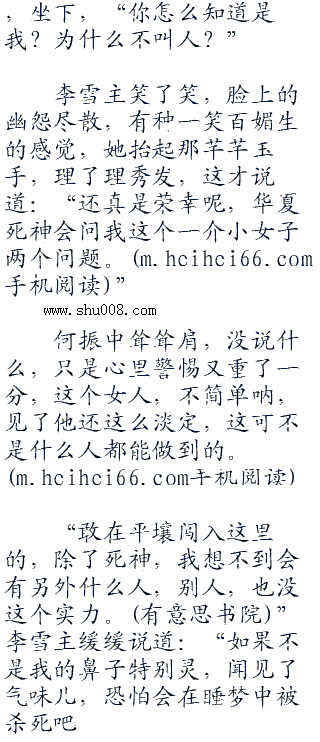 ，坐下，“你怎么知道是
我？为什么不叫人？”
李雪主笑了笑，脸上的
幽怨尽散，有种一笑百媚生
的感觉，她抬起那芊芊玉
手，理了理秀发，这才说
道：“还真是荣幸呢，华夏
死神会问我这个一介小女子
两个问题。(m.hcihci66.com
手机阅读)”
www.shu008.com
何振中耸耸肩，没说什
么，只是心里警惕又重了一
分，这个女人，不简单呐，
见了他还这么淡定，这可不
是什么人都能做到的。
(m.hcihci66.com手机阅读)
“敢在平壤闯入这里
的，除了死神，我想不到会
有另外什么人，别人，也没
这个实力。(有意思书院)”
李雪主缓缓说道：“如果不
是我的鼻子特别灵，闻见了
气味儿，恐怕会在睡梦中被
杀死吧